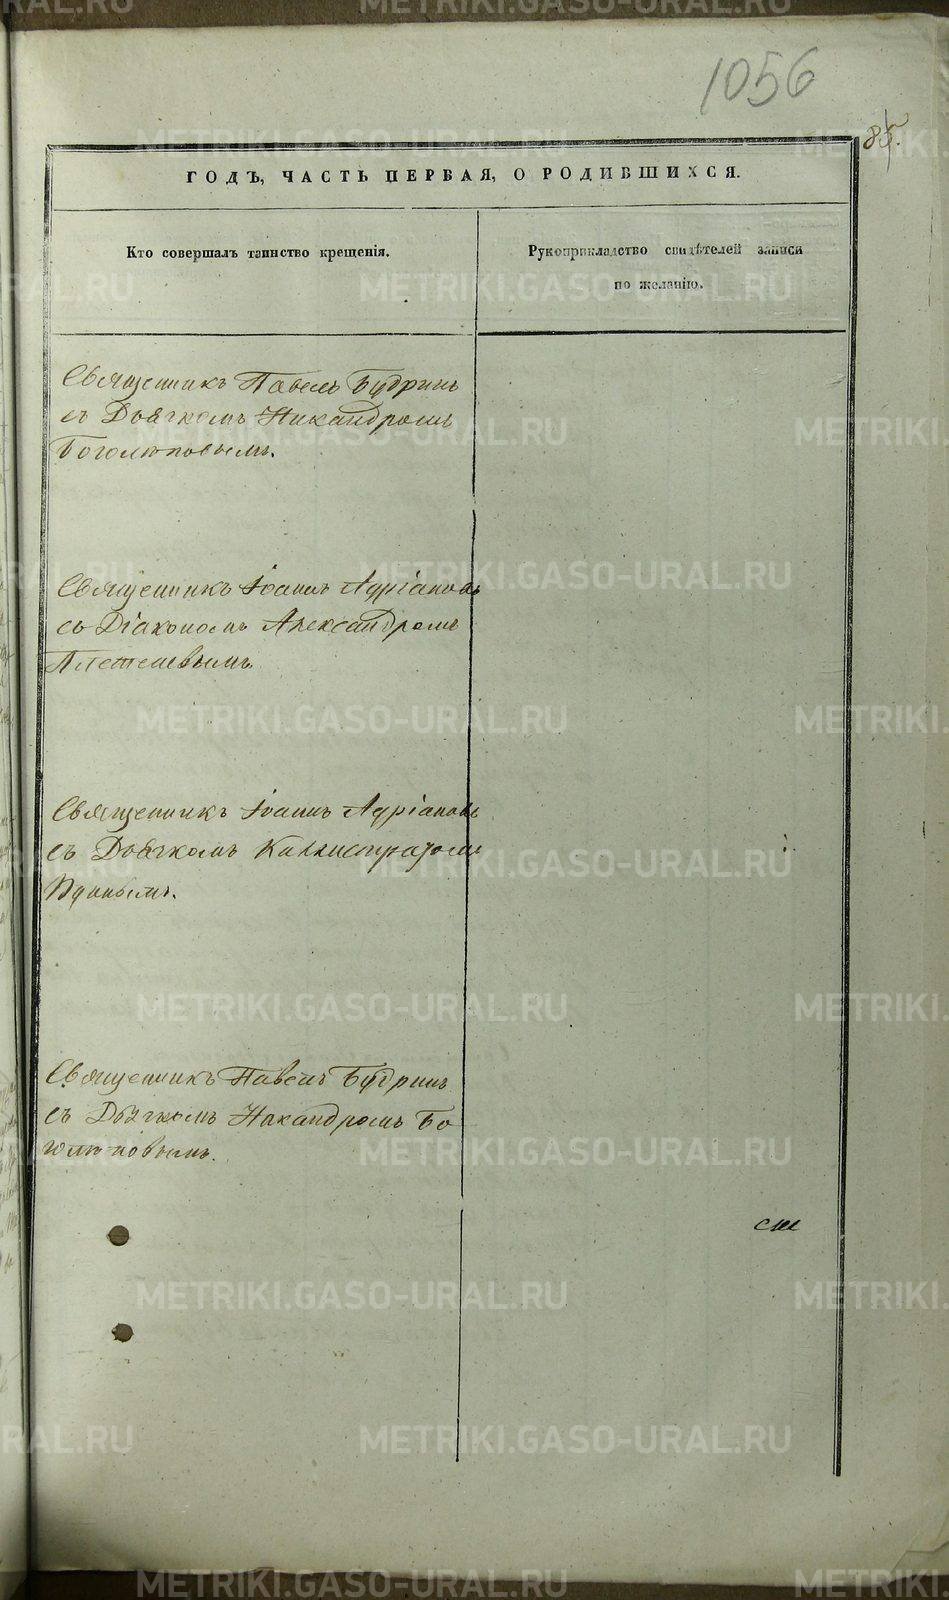 1056
85.
ГОДЪ, ЧАСТЬ ПЕРВАЯ, О РОДИВШИХСЯ.
Кто совершалъ таинство крещенія.
Рукоприкладство свидѣтелей записи
по желанію.
Священникъ Павелъ Будринъ
съ Дьячкомъ Никандромъ
Боголюповымъ.
Священникъ Іоаннъ Адріановъ
съ Діакономъ Александромъ
Плетневымъ
Священникъ Іоаннъ Адріановъ
съ Дьячкомъ Каллистратомъ
Священникъ Павелъ Будринъ
съ Дьячкомъ Никандромъ Бо
голюповымъ.
METRIKI.GASO-URAL.RU